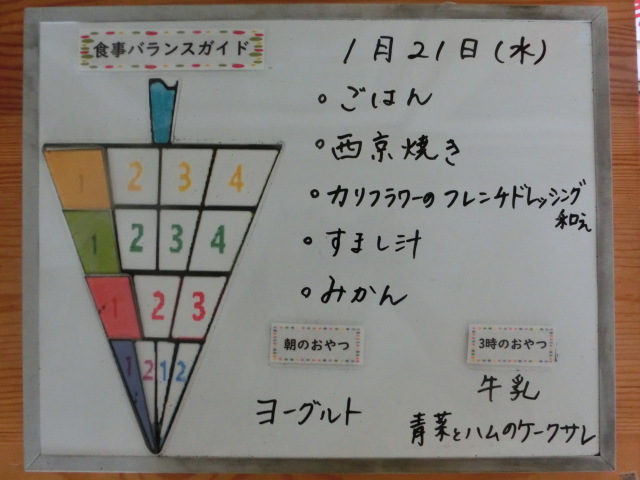 食事バランスガイド
1月21日(水)
ごはん
西京焼き
カリフラワーのフレンチドレッシング
和え
すまし汁
みかん
1 2 3 4
1 2 3 4
1 2 3
1 2 1 2
朝のおやつ
ヨーグルト
3時のおやつ
牛乳
青菜とハムのケークサレ